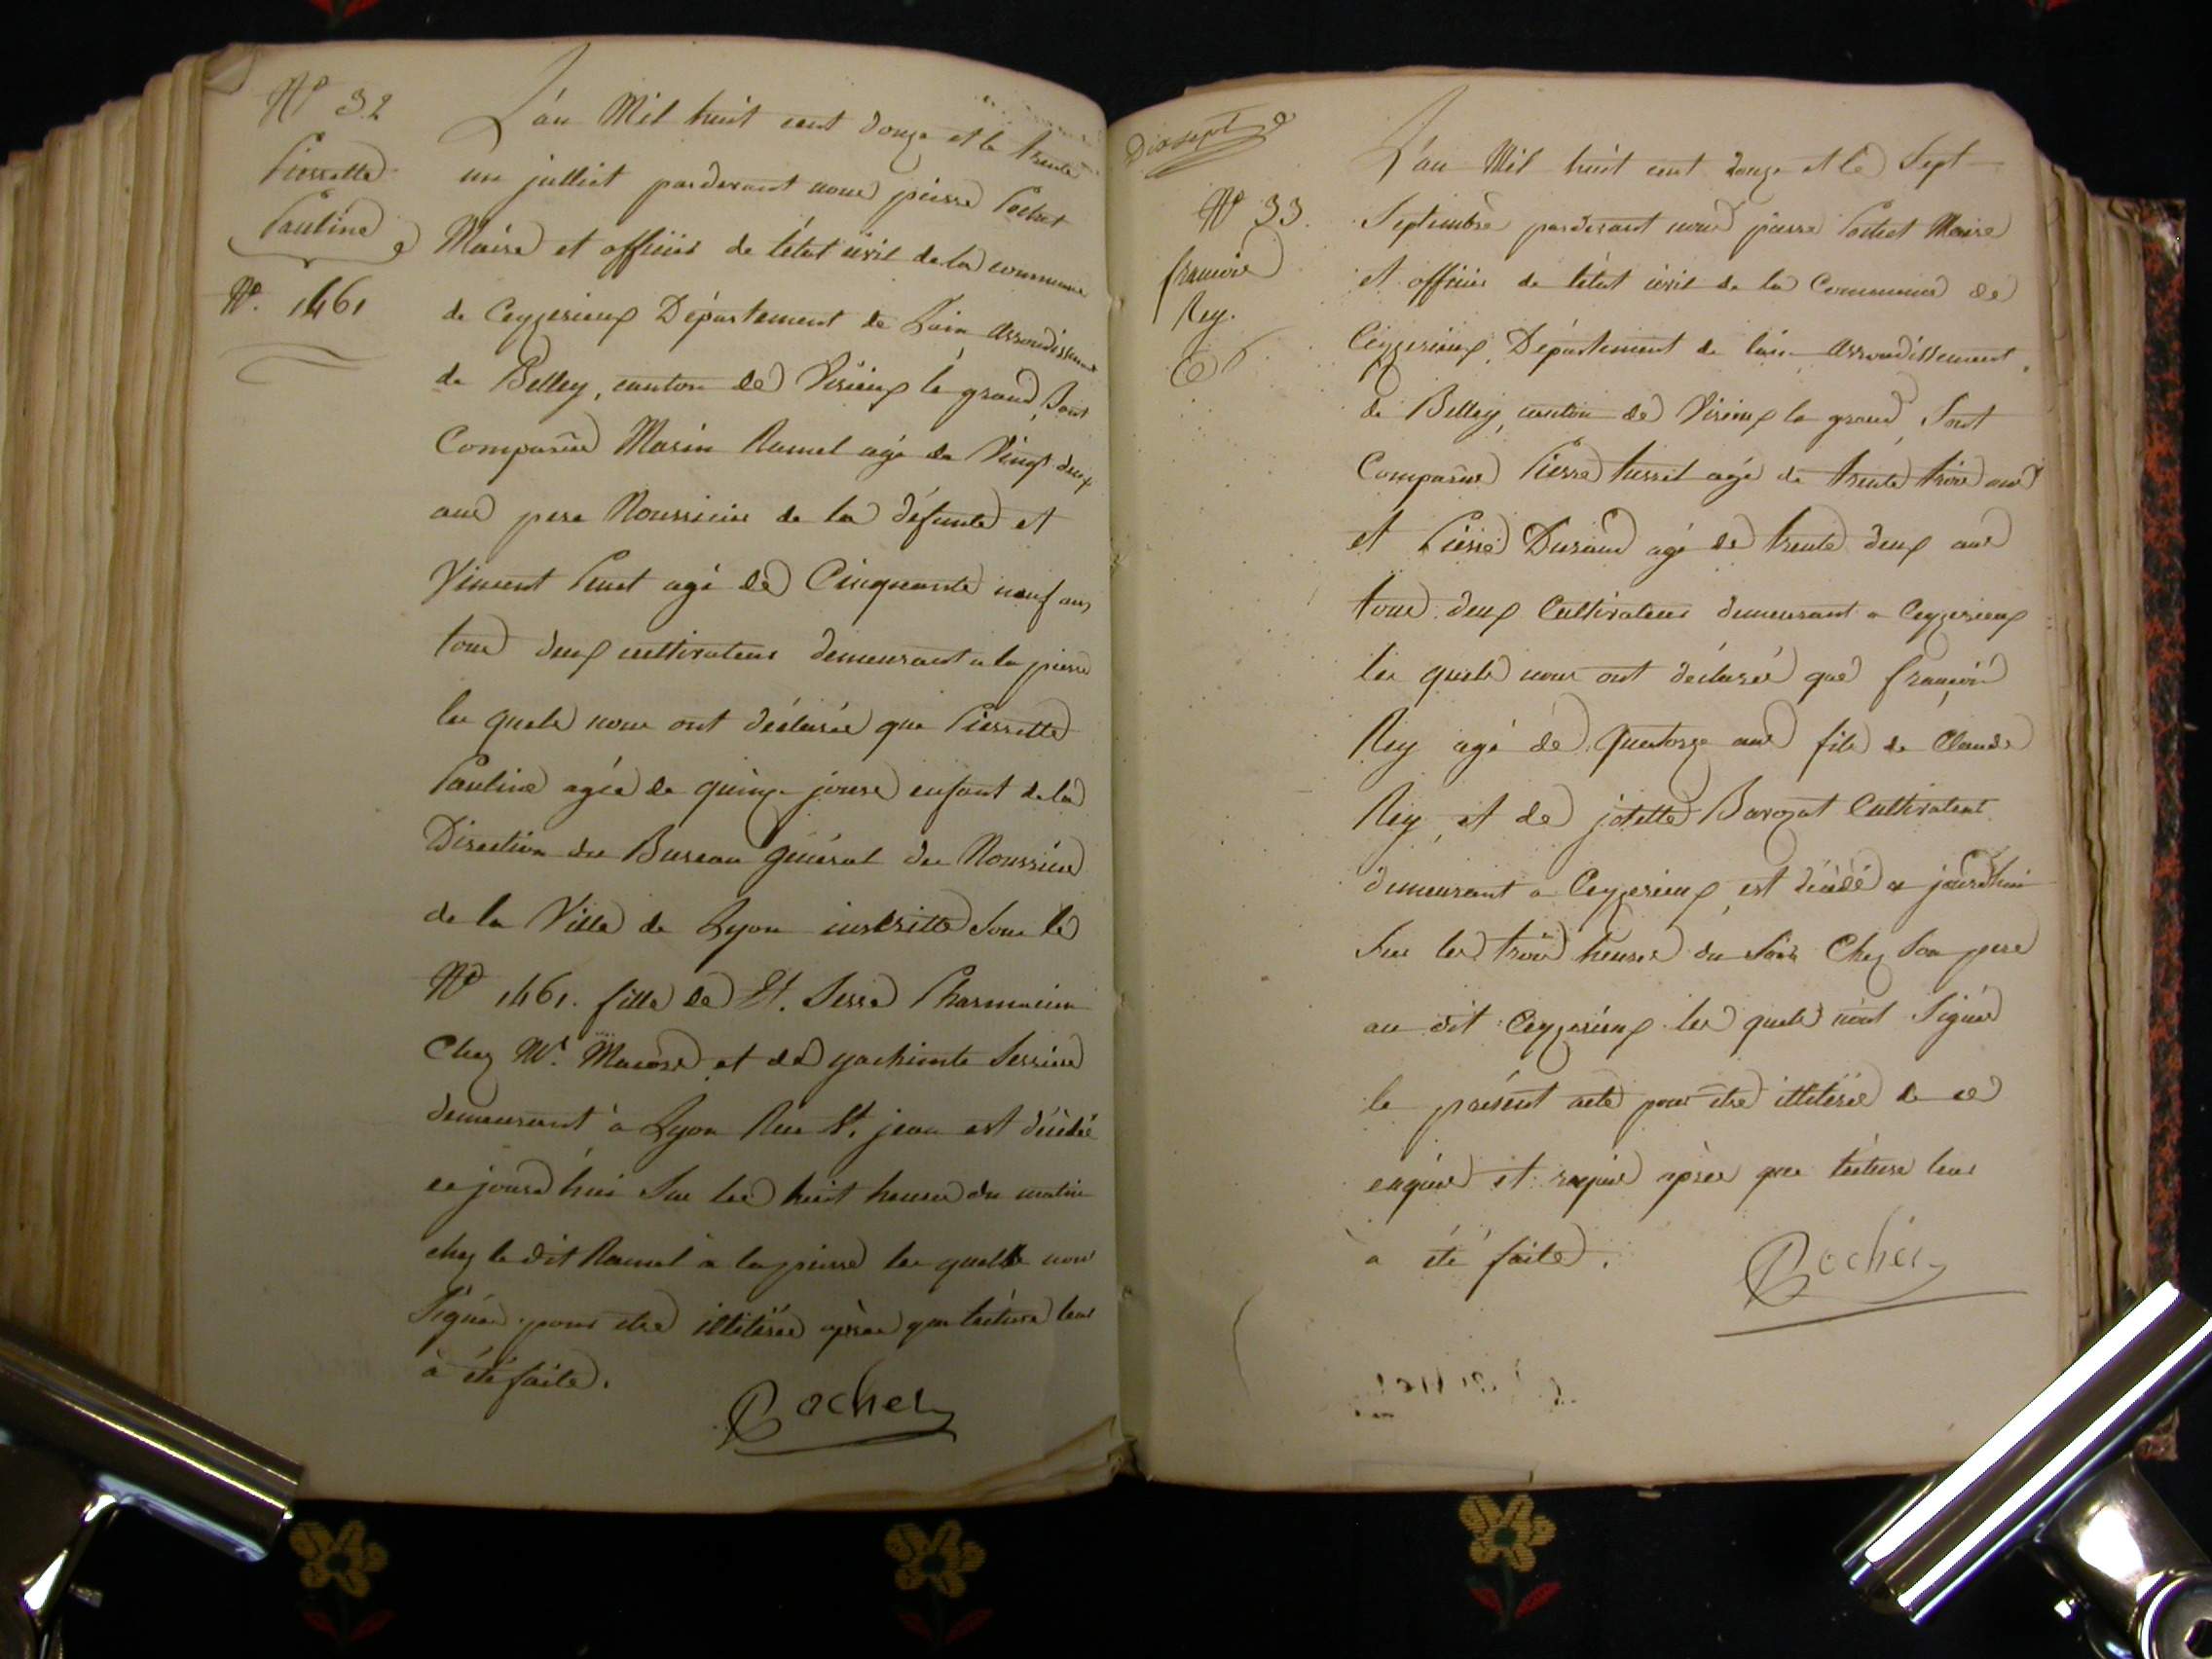 N° 32
Pierrette
Pauline
N°. 1461
L'an Mil huit cent douze et le trente
un julliet pardevant nous pierre Pochet
Maire et officier de l'état civil de la commune
de Ceyzerieux Département de Lain Arrondissement
de Belley, canton de Virieux le grand, Sont
Comparûs Marin Ramel agé de Vingt deux
ans pere Nourricier de la défunte et
Vincent agé de Cinquante neuf ans
tous deux cultivateurs demeurant a la pierre
les quels nous ont déclarés que Pierrette
Pauline agée de quinze jours enfant de la
Direction du Bureau général des Nourrices
de la Ville de Lyon inscritte Sous le
N° 1461. fille de Et. Serre Pharmacien
Chez Mr. et de yachinte Serrière
demeurant à Lyon Rue St. jean est décédée
ce jourd'hui Sur les huit heures du matin
chez le dit Ramel a la pierre les quels nont
Signés pour etre illitérés après que lecture leur
à été faite.
Pochet
Dixsept
N° 33.
francois
Rey.
L'an Mil huit cent douze et le Sept
Septembre pardevant nous pierre Pochet Maire
et officier de l'état civil de la Commune de
Ceyzerieux, Département de lain Arrondissement
de Belley, canton de Virieux le grand, Sont
Comparûs Pierre agé de trente trois ans
et Pierre Durand agé de trente deux ans
tous deux Cultivateurs demeurant a Ceyzerieux
les quels nous ont déclarés que francois
Rey agé de Quatorze ans fils de Claude
Rey, et de josette Barozat Cultivateur
demeurant a Ceyzerieux est décédé ce jourd'hui
Sur les trois heures du Soir Chez Son pere
au dit Ceyzerieux les quels n'ont Signés
le présent acte pour être illitérés de ce
enquis et requis après que lecture leur
à été faite.
Pochet